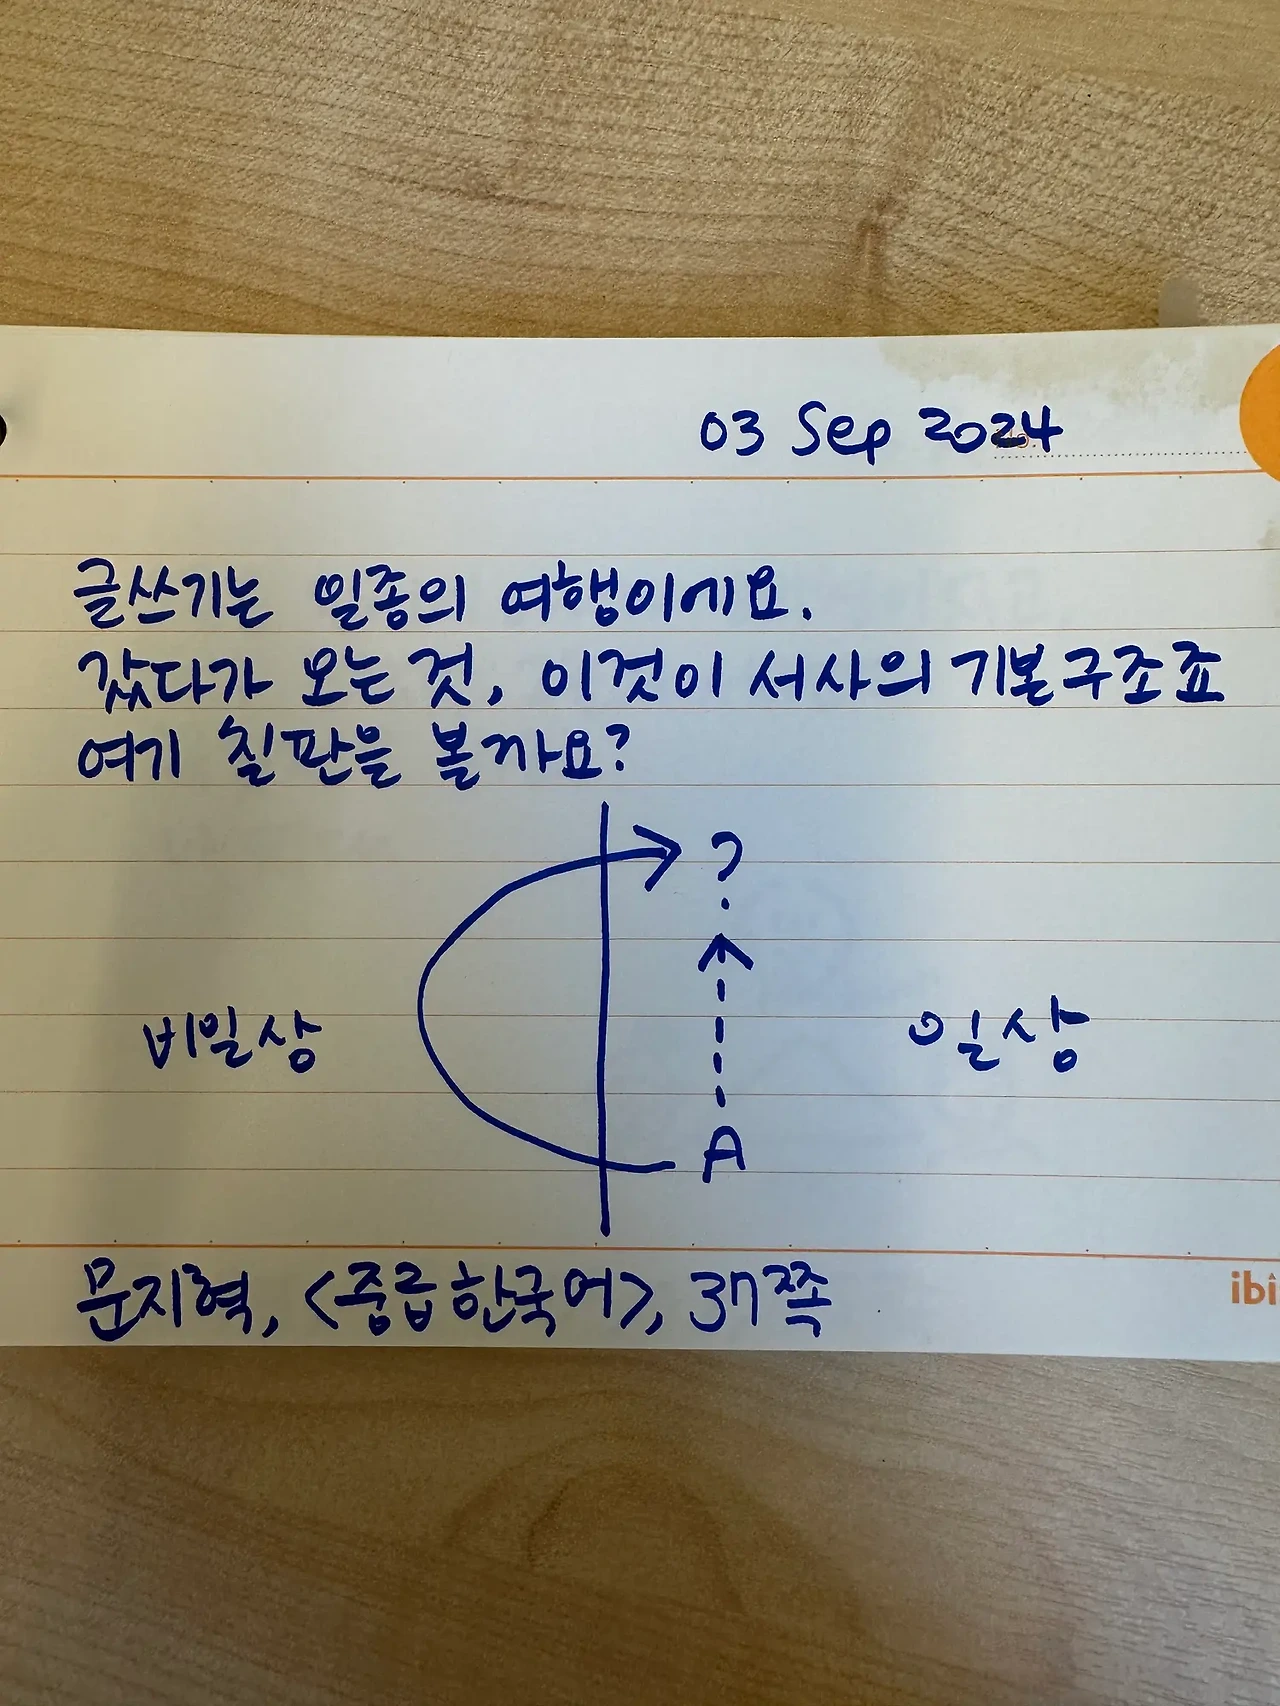 03 Sep 2024
글쓰기는 일종의 여행이에요.
갔다가 오는 것, 이것이 서사의 기본구조죠
여기 칠판을 볼까요?
?
비일상 일상
A
문지혁, <중급 한국어>, 37쪽